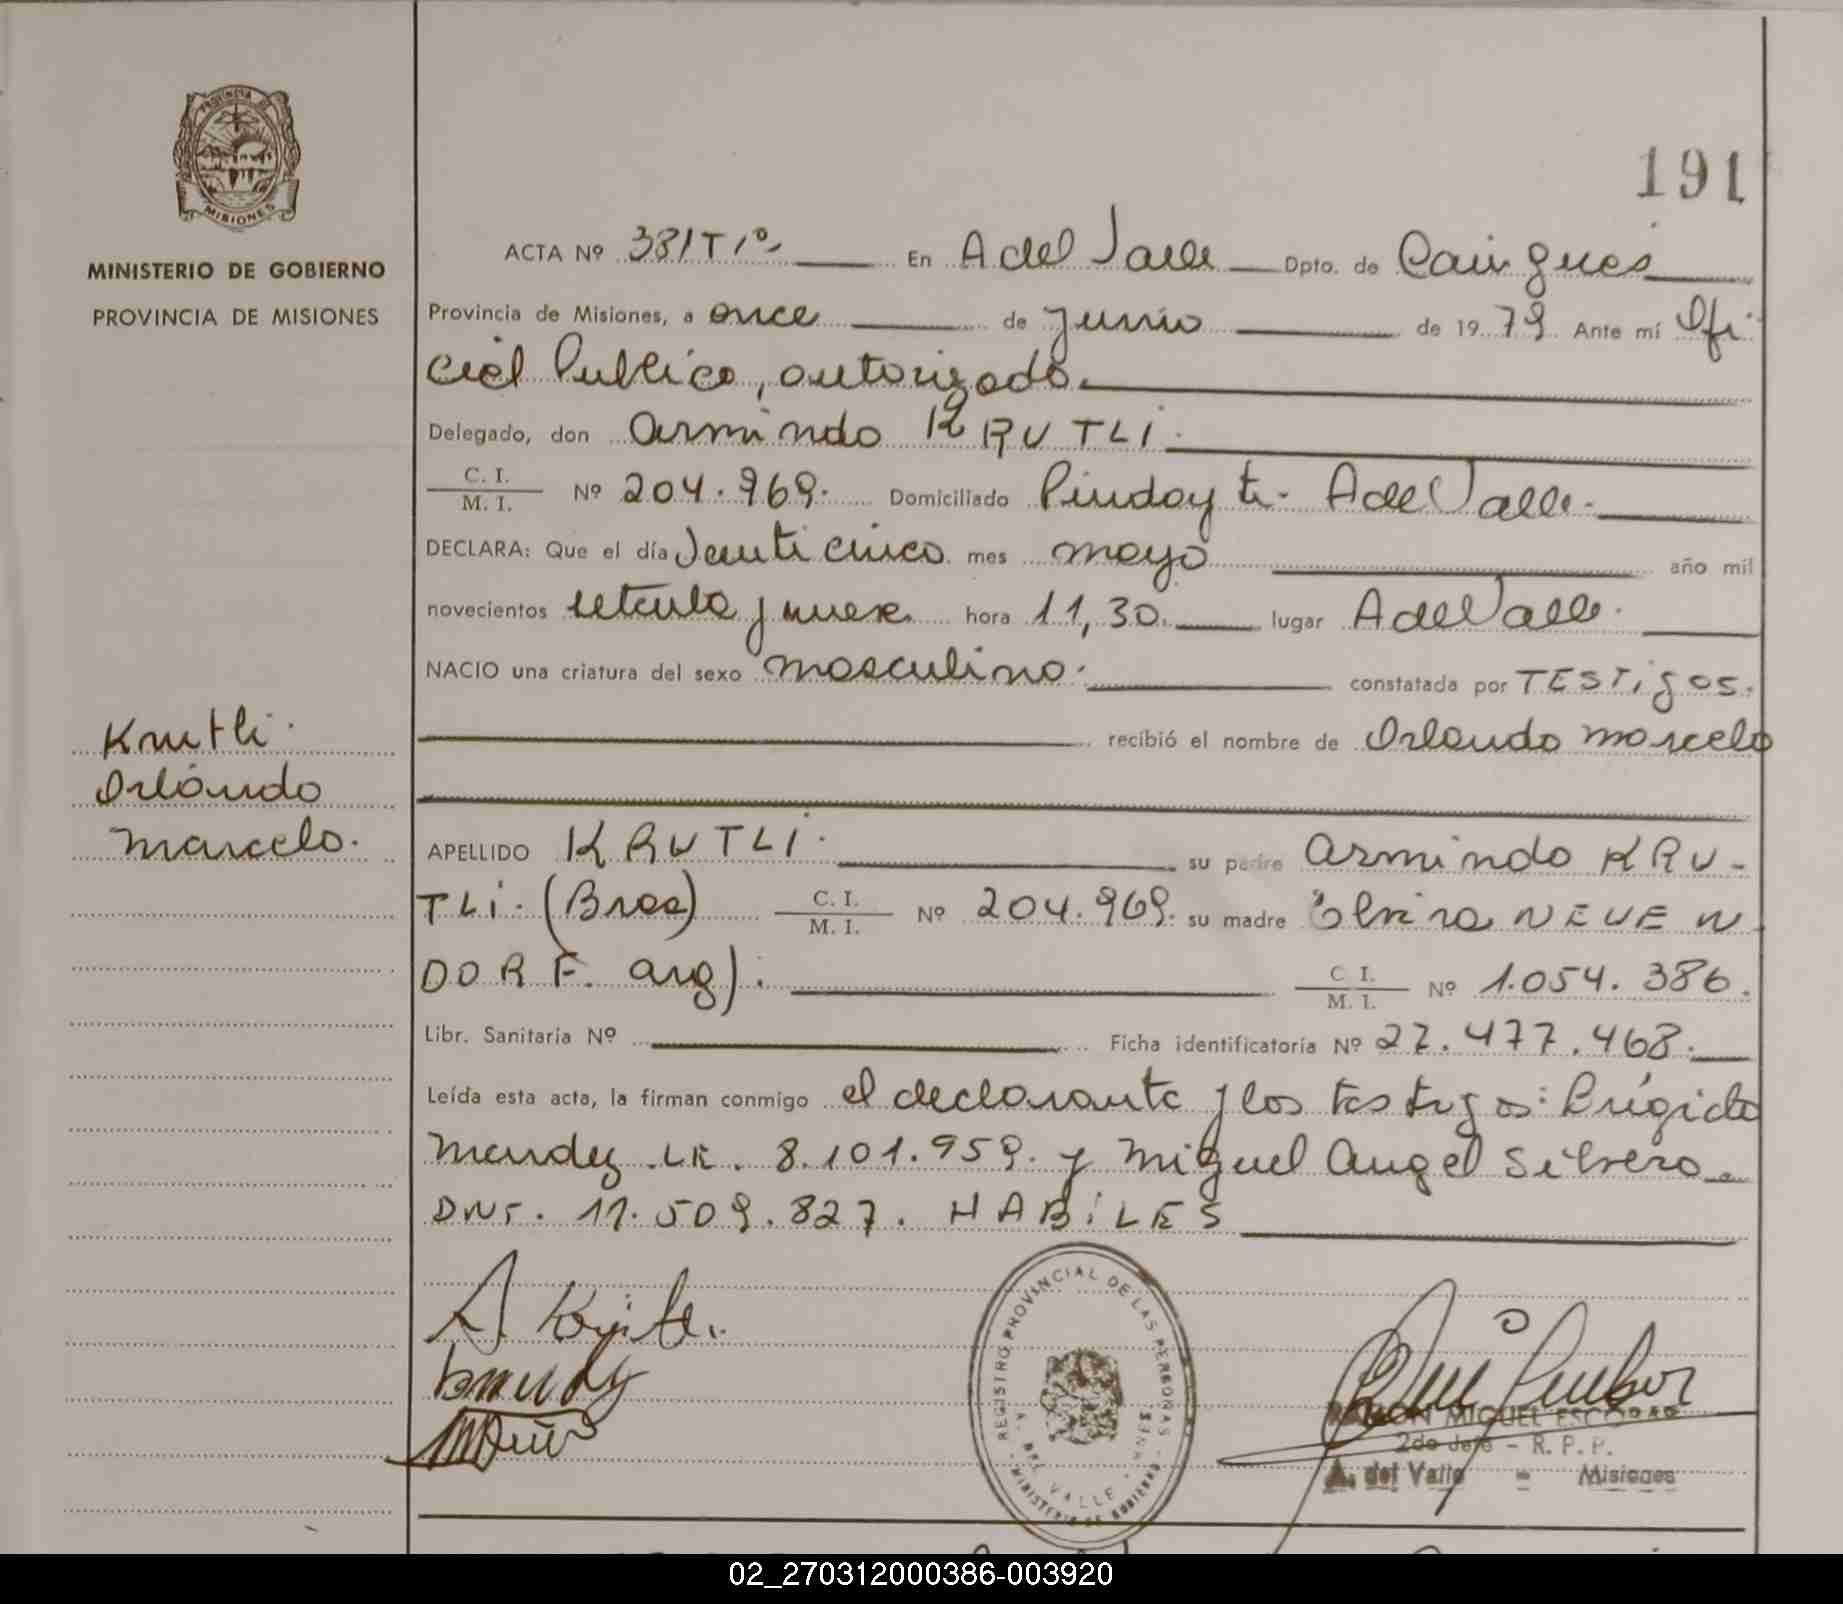 191
PROVINCIA DE
MISIONES
MINISTERIO DE GOBIERNO
PROVINCIA DE MISIONES
ACTA Nº 381 Tº 1º En A del Valle Dpto. de Cainguas
Provincia de Misiones, a once de junio de 19 79 Ante mí Ofi
cial Publico, autorizado.
Delegado, don Armindo KRUTLi.
C. I.
M. I. Nº 204.969. Domiciliado Pindayti - A del Valle.
DECLARA: Que el día Veinticinco mes mayo año mil
novecientos setenta y nueve hora 11,30. lugar A del Valle.
NACIO una criatura del sexo masculino. constatada por TESTigos.
recibió el nombre de Orlando Marcelo
Krutli.
Orlando
Marcelo.
APELLIDO KRUTLI. su padre Armindo KRU-
TLi. (Bras) C. I.
M. I. Nº 204.969. su madre Elvira NEUEN
DORF. arg). C. I.
M. I. Nº 1.054.386.
Libr. Sanitaria Nº Ficha identificatoria Nº 27.477.468.
Leída esta acta, la firman conmigo el declarante y los testigos: Brígido
Mendez LE. 8.101.959. y Miguel Angel Silvero.
DNI. 11.509.827. HABiLES
REGISTRO PROVINCIAL DE LAS PERSONAS
A. DEL VALLE
MINISTERIO DE GOBIERNO
RAMON MIGUEL ESCOBAR
2do Jefe - R. P. P.
A. del Valle - Misiones
02_270312000386-003920